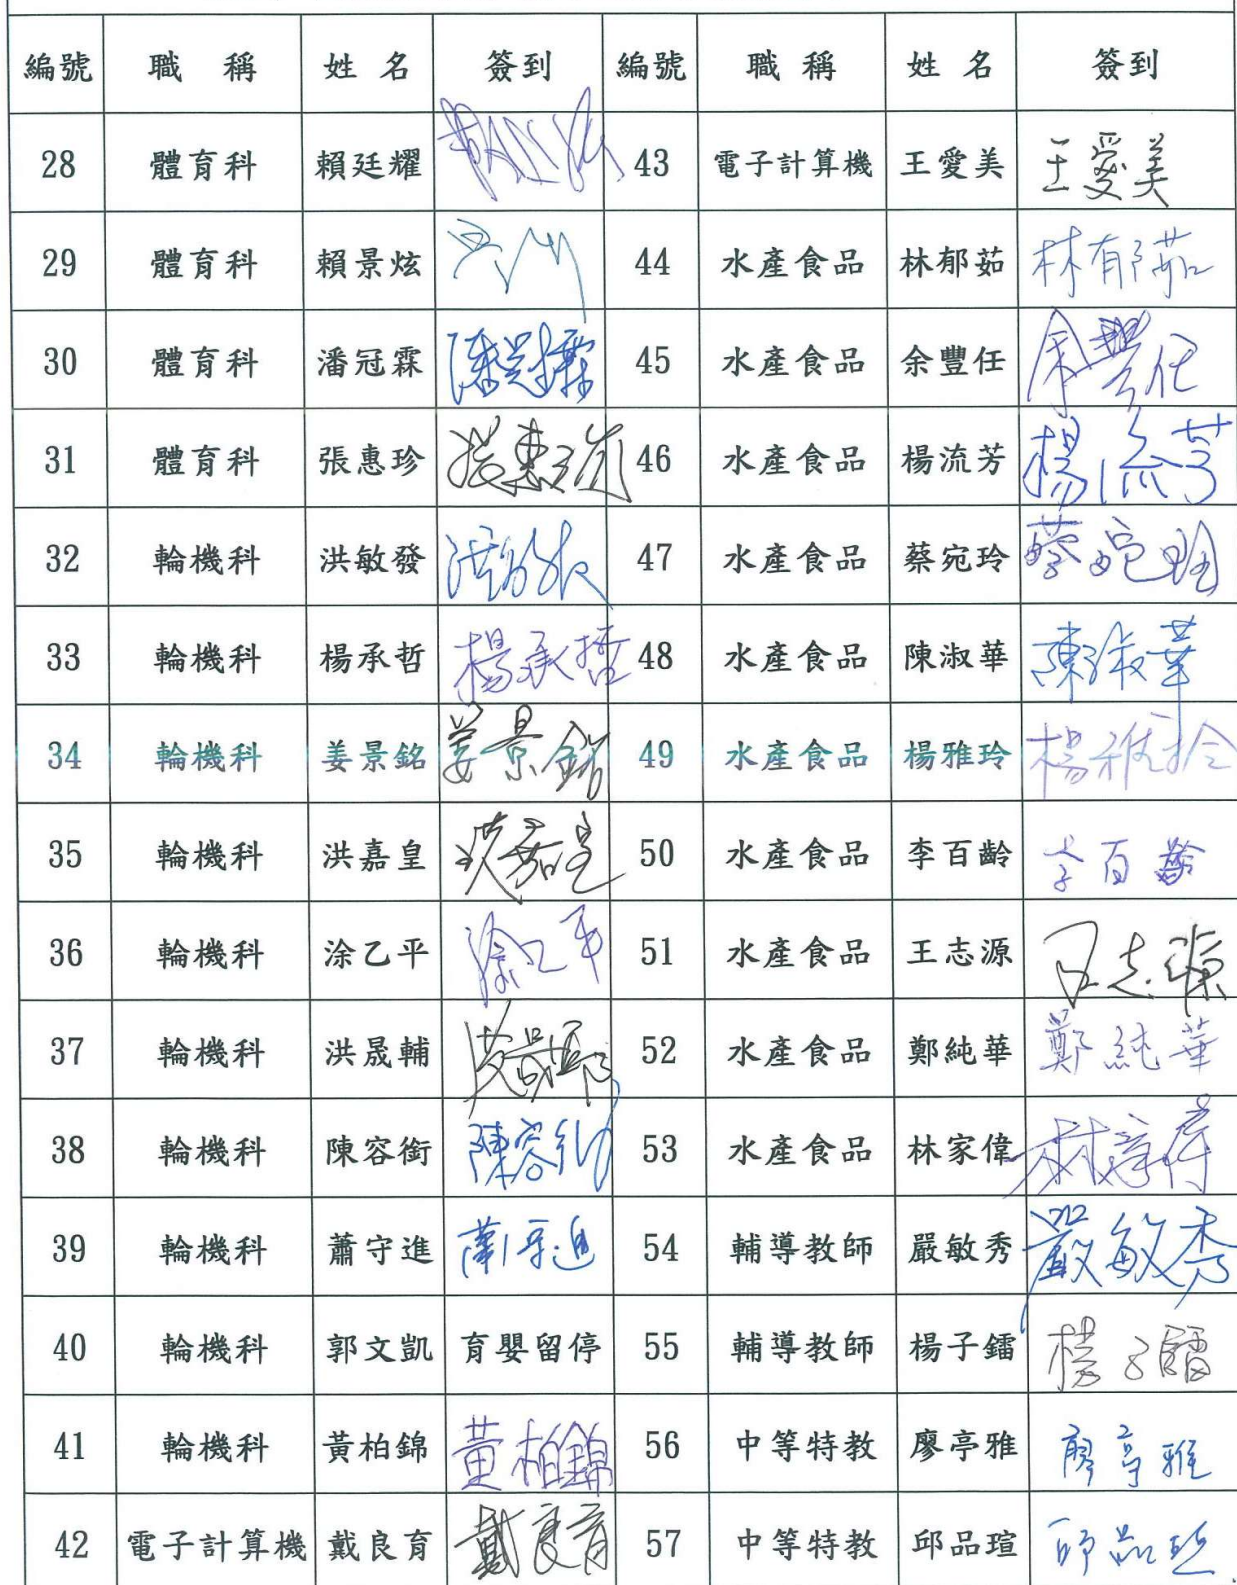 編號 職稱 姓名 簽到 編號 職稱 姓名 簽到
28 體育科 賴廷耀 43 電子計算機 王愛美 王愛美
29 體育科 賴景炫 44 水產食品 林郁茹 林郁茹
30 體育科 潘冠霖 潘冠霖 45 水產食品 余豐任 余豐任
31 體育科 張惠珍 張惠珍 46 水產食品 楊流芳 楊流芳
32 輪機科 洪敏發 洪敏發 47 水產食品 蔡宛玲 蔡宛玲
33 輪機科 楊承哲 楊承哲 48 水產食品 陳淑華 陳淑華
34 輪機科 姜景銘 姜景銘 49 水產食品 楊雅玲 楊雅玲
35 輪機科 洪嘉皇 洪嘉皇 50 水產食品 李百齡 李百齡
36 輪機科 涂乙平 涂乙平 51 水產食品 王志源 王志源
37 輪機科 洪晟輔 洪晟輔 52 水產食品 鄭純華 鄭純華
38 輪機科 陳容銜 陳容銜 53 水產食品 林家偉 林家偉
39 輪機科 蕭守進 蕭守進 54 輔導教師 嚴敏秀 嚴敏秀
40 輪機科 郭文凱 育嬰留停 55 輔導教師 楊子鐳 楊子鐳
41 輪機科 黃柏錦 黃柏錦 56 中等特教 廖亭雅 廖亭雅
42 電子計算機 戴良育 戴良育 57 中等特教 邱品瑄 邱品瑄